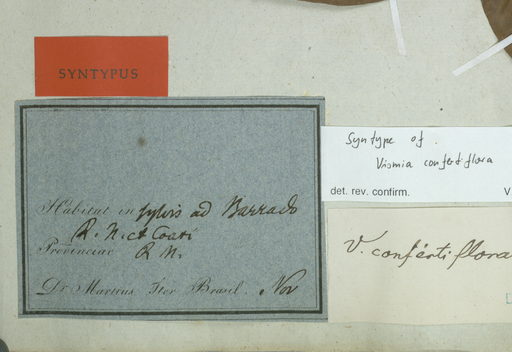 SYNTYPUS
Habitat in sylvis ad Barrado
R. N. et Coari
Provinciae R. N.
Dr. Martius Iter Brasil. Nov
Syntype of
Vismia confertiflora
det. rev. confirm. V.
V. confertiflora